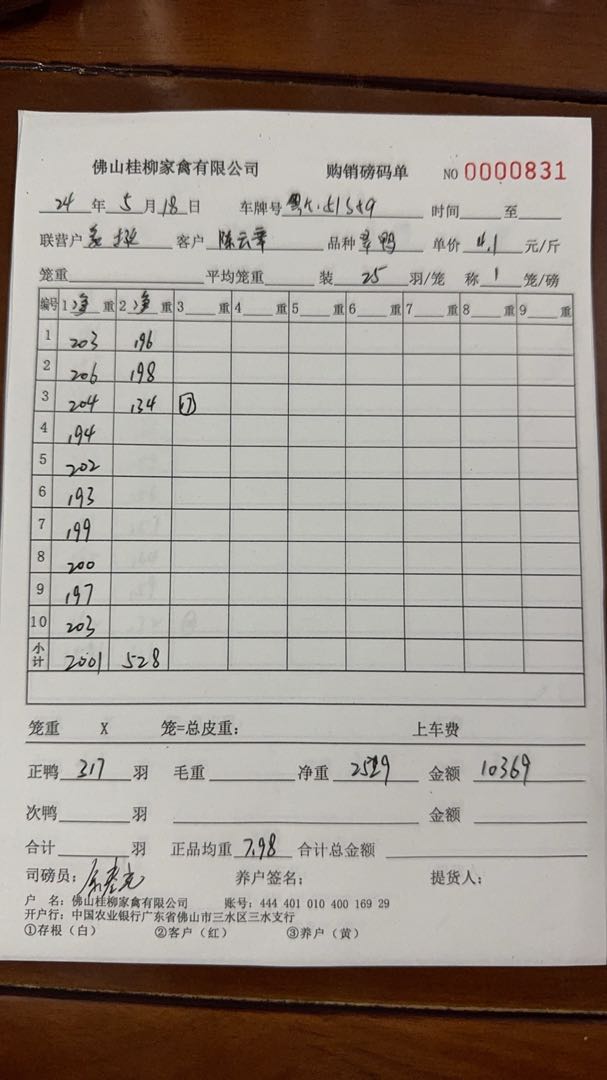 佛山桂柳家禽有限公司 购销磅码单 NO 0000831
24 年 5 月 18 日 车牌号 时间 至
联营户 客户 陈云 品种 鸭 单价 4.1 元/斤
笼重 平均笼重 装 25 羽/笼 称 1 笼/磅
编号 1 净 重 2 净 重 3 重 4 重 5 重 6 重 7 重 8 重 9 重
1 203 196
2 206 198
3 204 134 ⑰
4 194
5 202
6 193
7 199
8 200
9 197
10 203
小计 2001 528
笼重 X 笼=总皮重： 上车费
正鸭 317 羽 毛重 净重 2529 金额 10369
次鸭 羽 金额
合计 羽 正品均重 7.98 合计总金额
司磅员： 养户签名； 提货人；
户 名：佛山桂柳家禽有限公司 账号：444 401 010 400 169 29
开户行：中国农业银行广东省佛山市三水区三水支行
①存根（白） ②客户（红） ③养户（黄）